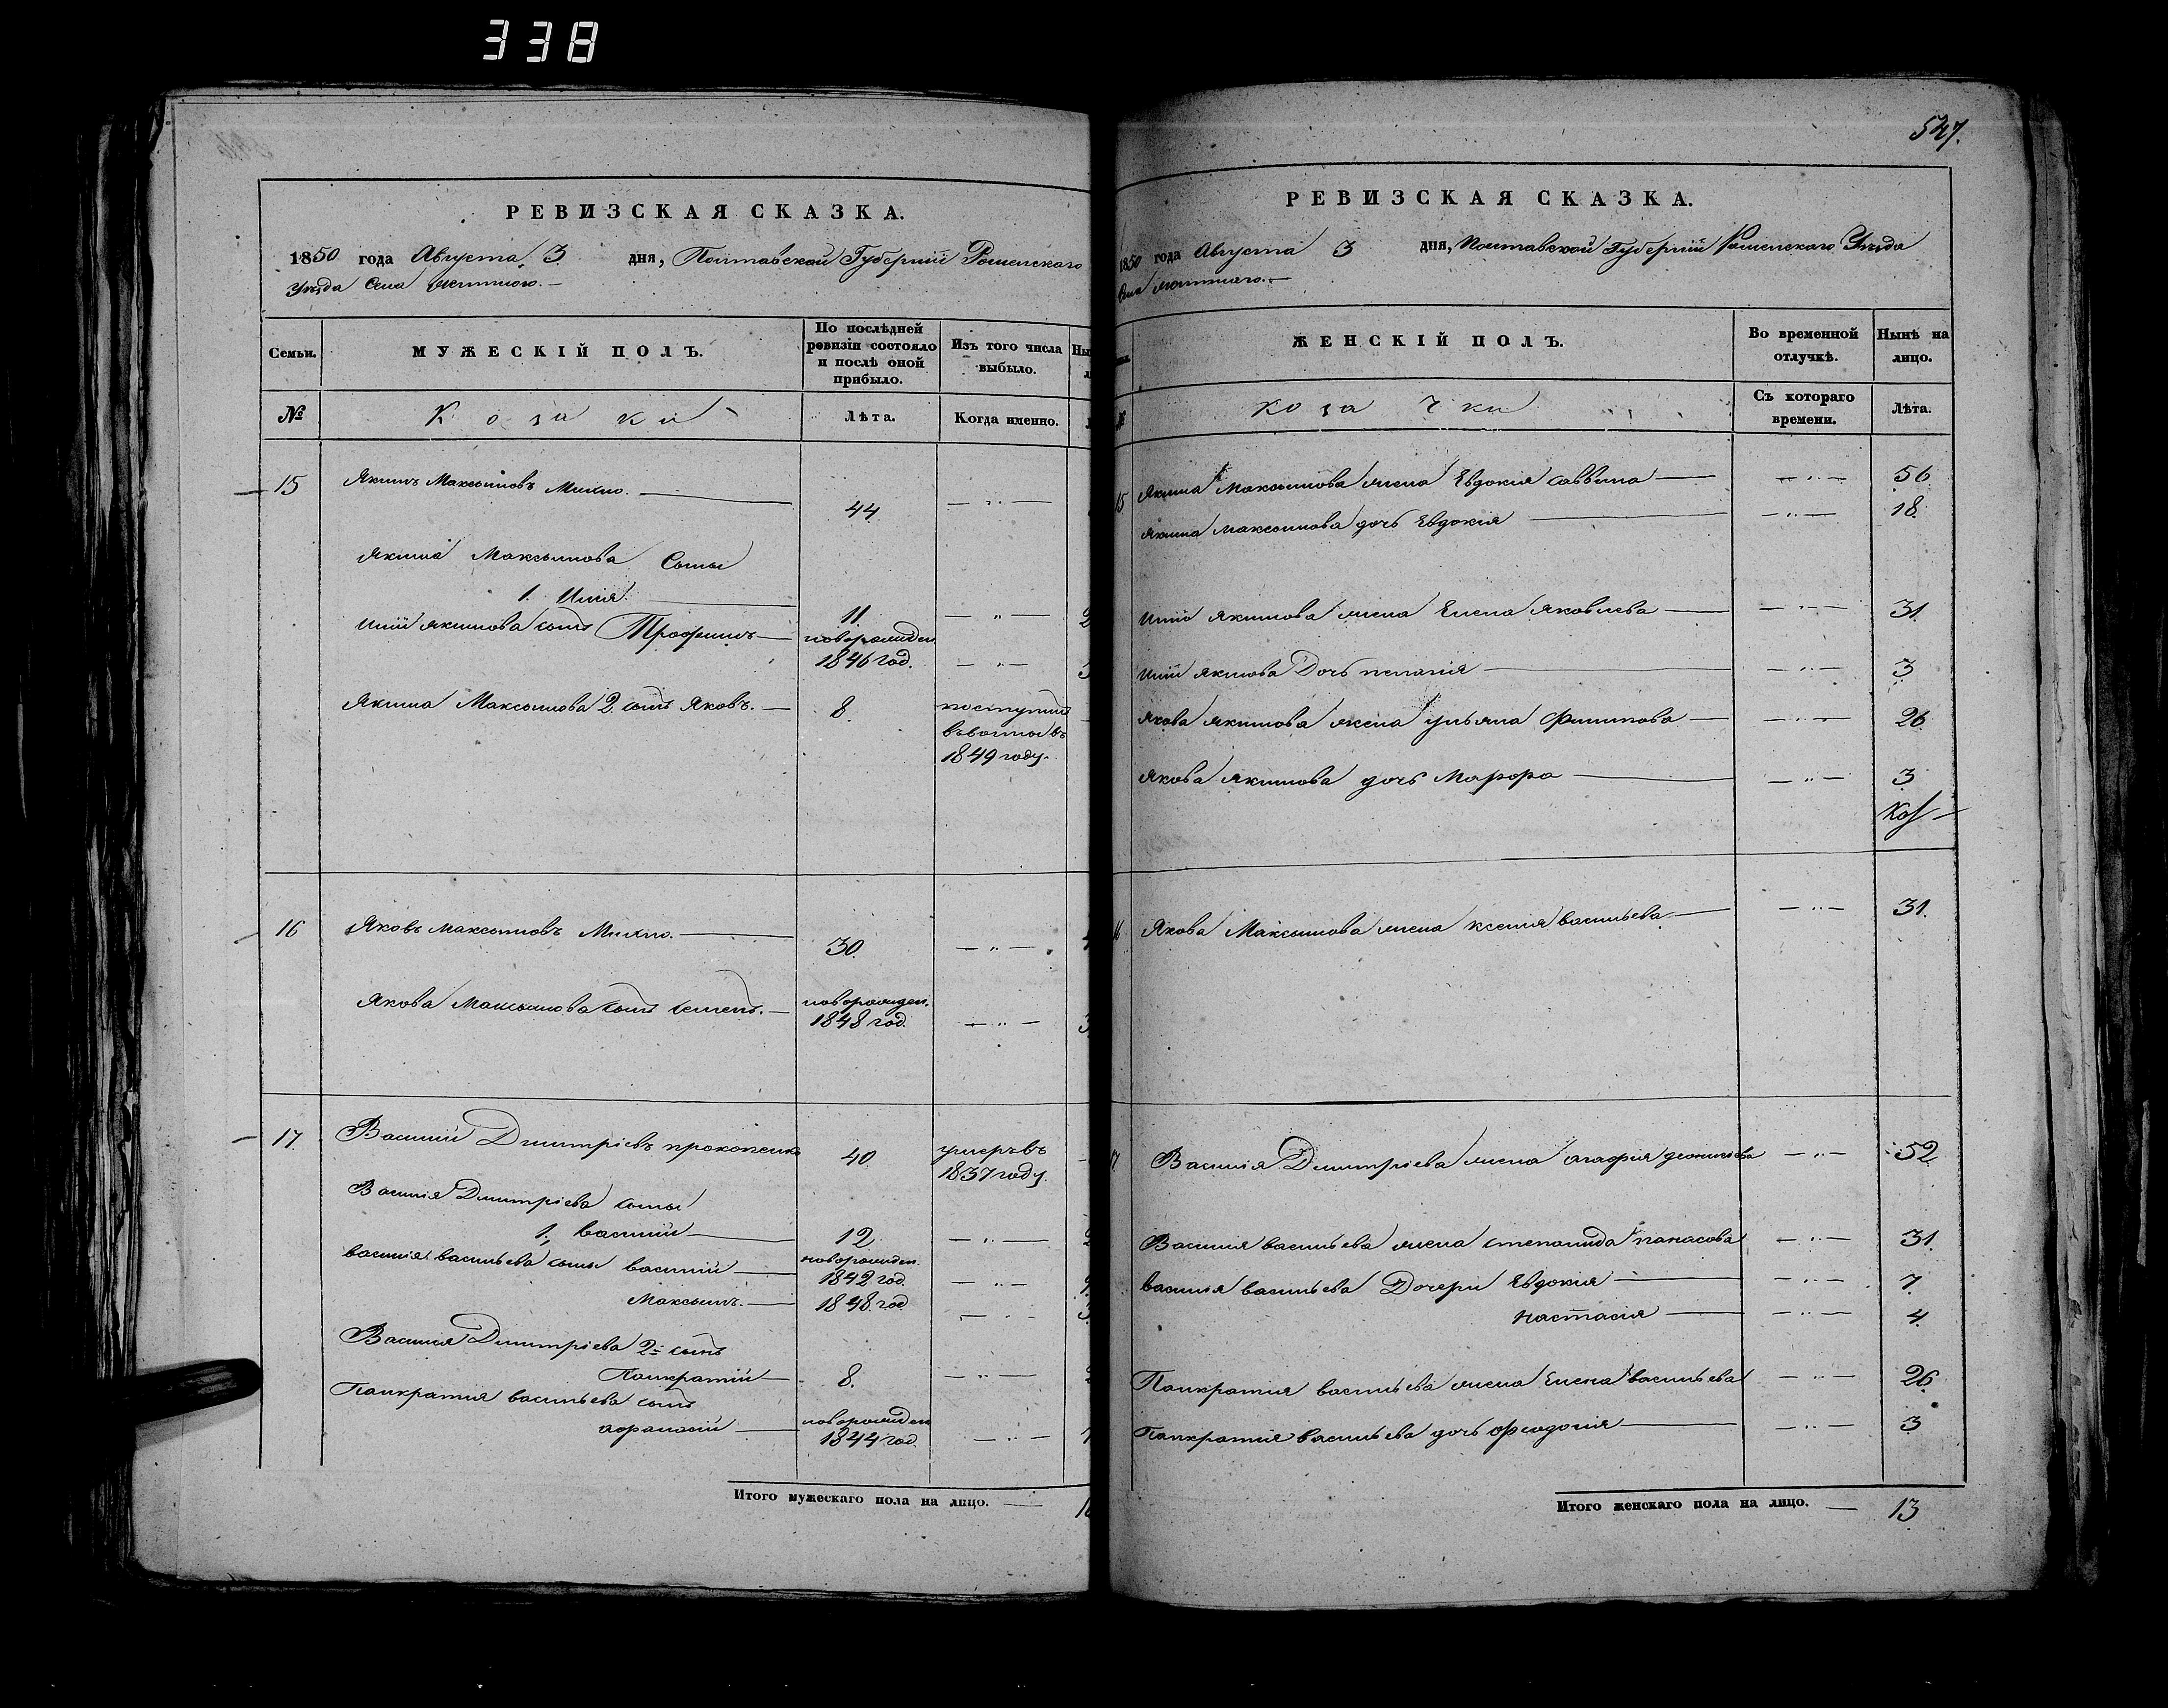 338
547.
РЕВИЗСКАЯ СКАЗКА.
1850 года Августа 3 дня, Полтавской Губерніи Роменскаго
Уѣзда Села
Семьи.
МУЖЕСКІЙ ПОЛЪ.
По послѣдней ревизіи состояло и послѣ оной прибыло.
Изъ того числа выбыло.
№
Козаки
Лѣта.
Когда именно.
15 Якимъ Максимовъ Михно. 44
Якима Максимова Сыны
1. Илія. 11.
Иліи Якимова сынъ Трофимъ новорожден. 1846 год.
Якима Максимова 2. сынъ Яковъ. 8. поступилъ 1849 году.
16 Яковъ Максимовъ Михно. 30.
Якова Максимова сынъ Семенъ. новорожден. 1848 год.
17. Василій Димитріевъ Прокопенко 40. умеръ въ 1837 году.
Василія Димитріева сыны
1. Василій 12.
Василія Васильева сыны Василій новорожден. 1842 год.
Максимъ. 1848 год
Василія Димитріева 2й сынъ
Панкратій 8.
Панкратія Васильева сынъ
Афанасій новорожден 1844 год.
Итого мужескаго пола на лицо.
РЕВИЗСКАЯ СКАЗКА.
1850 года Августа 3 дня, Полтавской Губерніи Роменскаго Уѣзда
Села
ЖЕНСКІЙ ПОЛЪ.
Во временной отлучкѣ.
Нынѣ на лицо.
Козачки
Съ котораго времени.
Лѣта.
15 Якима Максимова жена Евдокія Саввина 56
Якима Максимова дочь Евдокія 18.
Иліи Якимова жена Елена Яковлева 31.
Иліи Якимова Дочь Пелагія 3
Якова Якимова жена Ульяна Филипова 26
Якова Якимова дочь Марфа 3
16 Якова Максимова жена Ксенія Васильева 31.
Василія Димитріева жена Агафія 52
Василія Васильева жена Степанида Панасова 31.
Василія Васильева Дочери Евдокія 7.
Настасія 4.
Панкратія Васильева жена Елена Васильева 26
Панкратія Васильева дочь Феодосія 3
Итого женскаго пола на лицо. 13